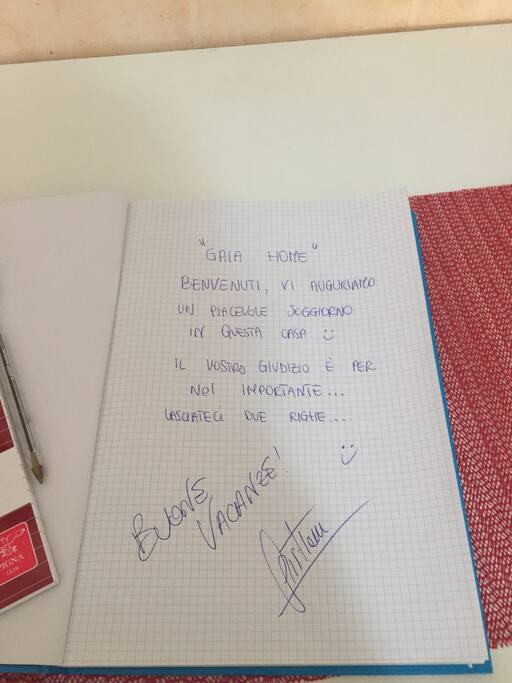 "GAIA HOME"
BENVENUTI, VI AUGURIAMO
UN PIACEVOLE SOGGIORNO
IN QUESTA CASA :)
IL VOSTRO GIUDIZIO È PER
NOI IMPORTANTE...
LASCIATECI DUE RIGHE...
:)
BUONE
VACANZE!